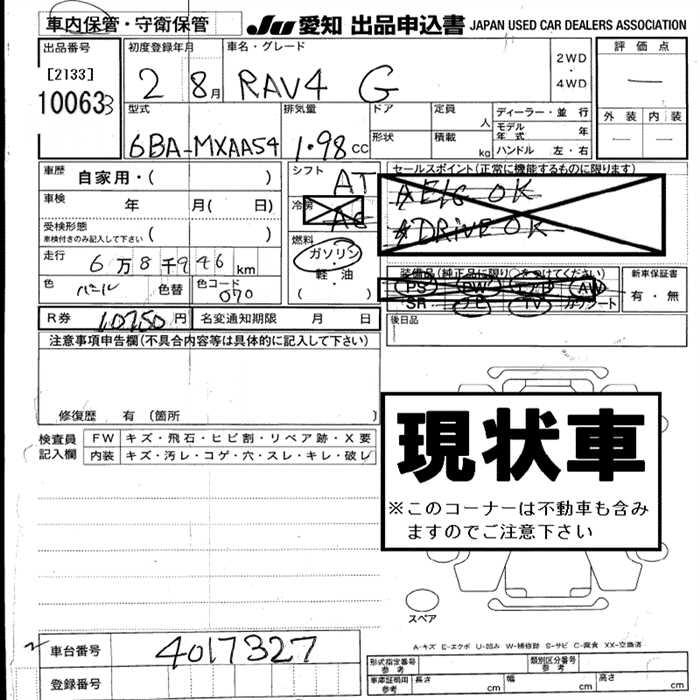 車内保管・守衛保管 JU愛知 出品申込書 JAPAN USED CAR DEALERS ASSOCIATION
出品番号 初度登録年月 車名・グレード 評価点
[2133] 2 8月 RAV4 G 2WD・4WD
10063
型式 排気量 ドア 定員 人 ディーラー・並行 外装 内装
6BA-MXAA54 1.98 cc 形状 積載 kg モデル年式 年
ハンドル 左・右
車歴 自家用・( ) シフト AT セールスポイント(正常に機能するものに限ります)
車検 年 月( 日) 冷房 AC
受検形態 ( )
車検付きのみ記入して下さい
DRIVE OK
燃料 ガソリン・軽・油 ( )
走行 6万8千946km
装備品(純正品に限り○をつけてください) 新車保証書
色 パール 色替 色コード 070 PS PW エアB AW 有・無
SR ナビ TV カワシート
R券 10750円 名変通知期限 月 日 後日品
注意事項申告欄(不具合内容等は具体的に記入して下さい)
修復歴 有 (箇所 )
検査員記入欄 FW キズ・飛石・ヒビ割・リペア跡・X要
内装 キズ・汚レ・コゲ・穴・スレ・キレ・破レ
現状車
※このコーナーは不動車も含み
ますのでご注意下さい
スペア
A-キズ E-エクボ U-凹み W-補修跡 S-サビ C-腐食 XX-交換済
車台番号 4017327
登録番号
形式指定番号 参考 類別区分番号 参考
車庫証明用 参考 長さ cm 幅 cm 高さ cm